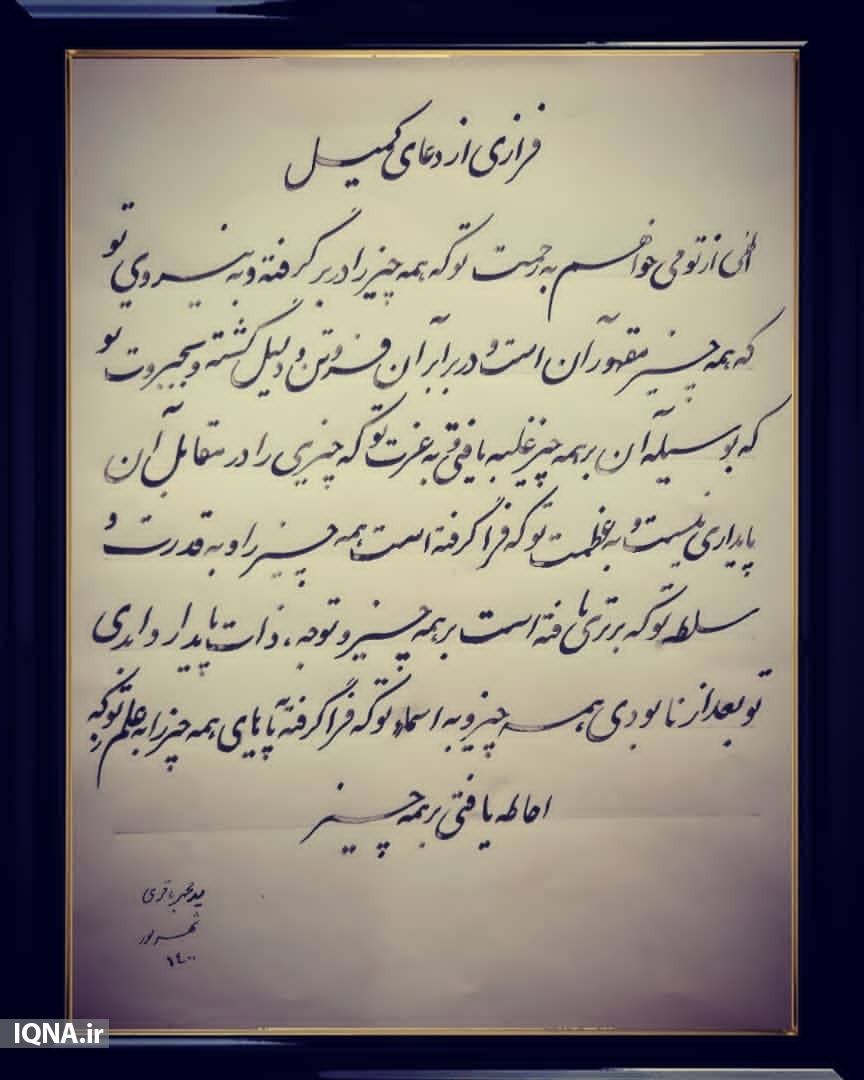 فرازی از دعای کمیل
الهی از تو می خواهم به رحمت تو که همه چیز را در بر گرفته و به نیروی تو
که همه چیز مقهور آن است و در برابر آن فروتن و ذلیل گشته و بجبروت تو
که بوسیله آن بر همه چیز غلبه یافتی و به عزت تو که چیزی را در مقابل آن
پایداری نیست و به عظمت تو که فرا گرفته است همه چیز را و به قدرت و
سلطه تو که برتری یافته است بر همه چیز و توجه، ذات پایدار و ابدی
تو بعد از نابودی همه چیز و به اسماء تو که فرا گرفته پایه‌های همه چیز را به علم تو که
احاطه یافتی بر همه چیز
باقری
شهریور
۱۴۰۰
IQNA.ir